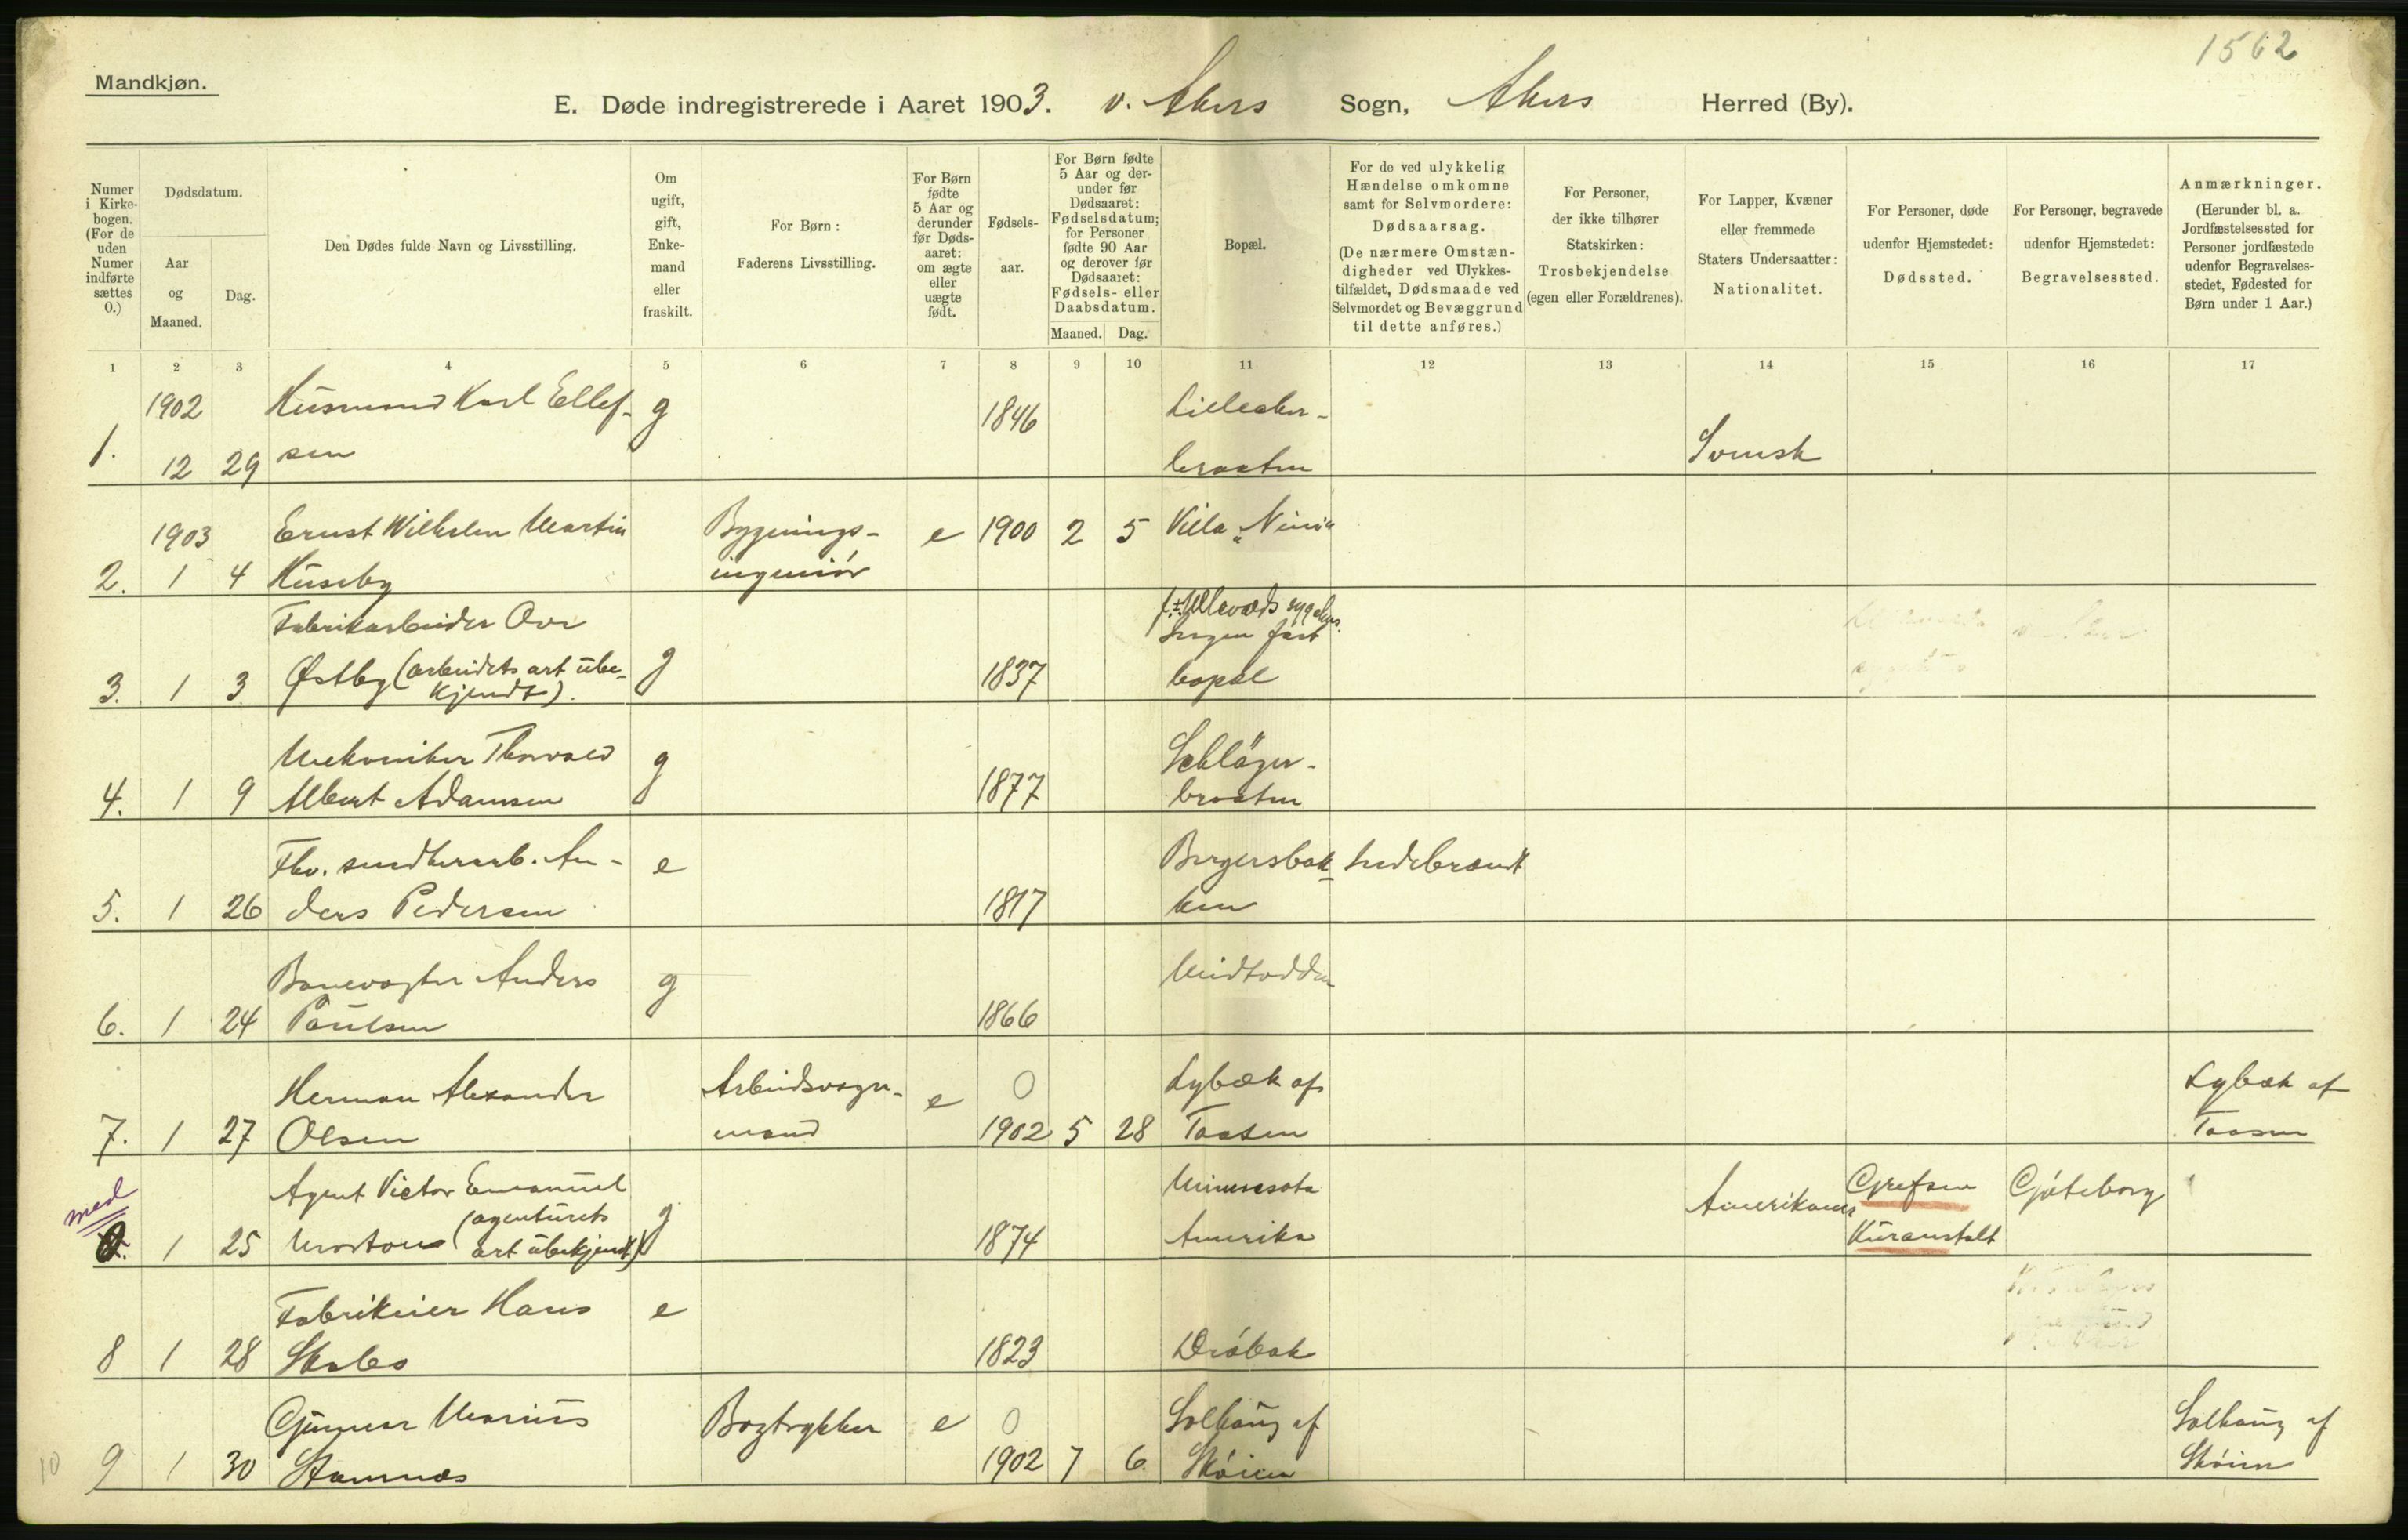 1562
Mandkjøn.
E. Døde indregistrerede i Aaret 1903. v. Akers Sogn, Akers Herred (By).
Numer i Kirkebogen. (For de uden Numer indførte sættes 0.)
Dødsdatum.
Aar og Maaned.
Dag.
Den Dødes fulde Navn og Livsstilling.
Om ugift, gift, Enkemand eller fraskilt.
For Børn: Faderens Livsstilling.
For Børn fødte 5 Aar og derunder før Dødsaaret: om ægte eller uægte født.
Fødselsaar.
For Børn fødte 5 Aar og derunder før Dødsaaret: Fødselsdatum; for Personer fødte 90 Aar og derover før Dødsaaret: Fødsels- eller Daabsdatum.
Maaned. Dag.
Bopæl.
For de ved ulykkelig Hændelse omkomne samt for Selvmordere: Dødsaarsag. (De nærmere Omstændigheder ved Ulykkestilfældet, Dødsmaade ved Selvmordet og Bevæggrund til dette anføres.)
For Personer, der ikke tilhører Statskirken: Trosbekjendelse (egen eller Forældrenes).
For Lapper, Kvæner eller fremmede Staters Undersaatter: Nationalitet.
For Personer, døde udenfor Hjemstedet: Dødssted.
For Personer, begravede udenfor Hjemstedet: Begravelsessted.
Anmærkninger. (Herunder bl. a. Jordfæstelsessted for Personer jordfæstede udenfor Begravelsesstedet, Fødested for Børn under 1 Aar.)
1 2 3 4 5 6 7 8 9 10 11 12 13 14 15 16 17
1902 Husmand Karl Ellef- g 1846 Lilleaker-
1. 12 29 sen braaten Svensk
1903 Ernst Wilhelm Martin Bygnings- e 1900 2 5 Villa "Nina"
2. 1 4 Huseby ingeniör
Fabrikarbeider Ove f. t. Ullevaals sygehus.
Ingen fast
3. 1 3 Østby (arbeidets art ube- g 1837 bopæl
kjendt).
Mekaniker Thorvald g Schläger-
4. 1 9 Albert Adamsen 1877 braaten
Fhv. smedkerarb. An- e Bergersbak- Indebrændt
5. 1 26 ders Pedersen 1817 ken
Banevogter Anders g Midtodden
6. 1 24 Paulsen 1866
Herman Alexander Arbeidsvogn- e 0 Lybæk af Lybæk af
7. 1 27 Olsen mand 1902 5 28 Taasen Taasen
med Agent Victor Emanuel g Minnesota Amerikaner Grefsen Göteborg
0. 1 25 Morton (agenturets art ubekjendt) 1874 Amerika Kuranstalt
Fabrikeier Hans e
8 1 28 Skabo 1823 Dröbak
Gunnar Marius Bogtrykker e 0 Solhaug af Solhaug af
10 9 1 30 Stamnæs 1902 7 6. Skøien Skøien